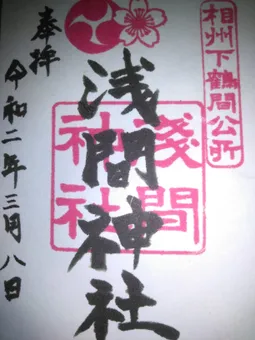 相州下鶴間公所
奉拝
浅間神社
淺間
神社
令和二年三月八日